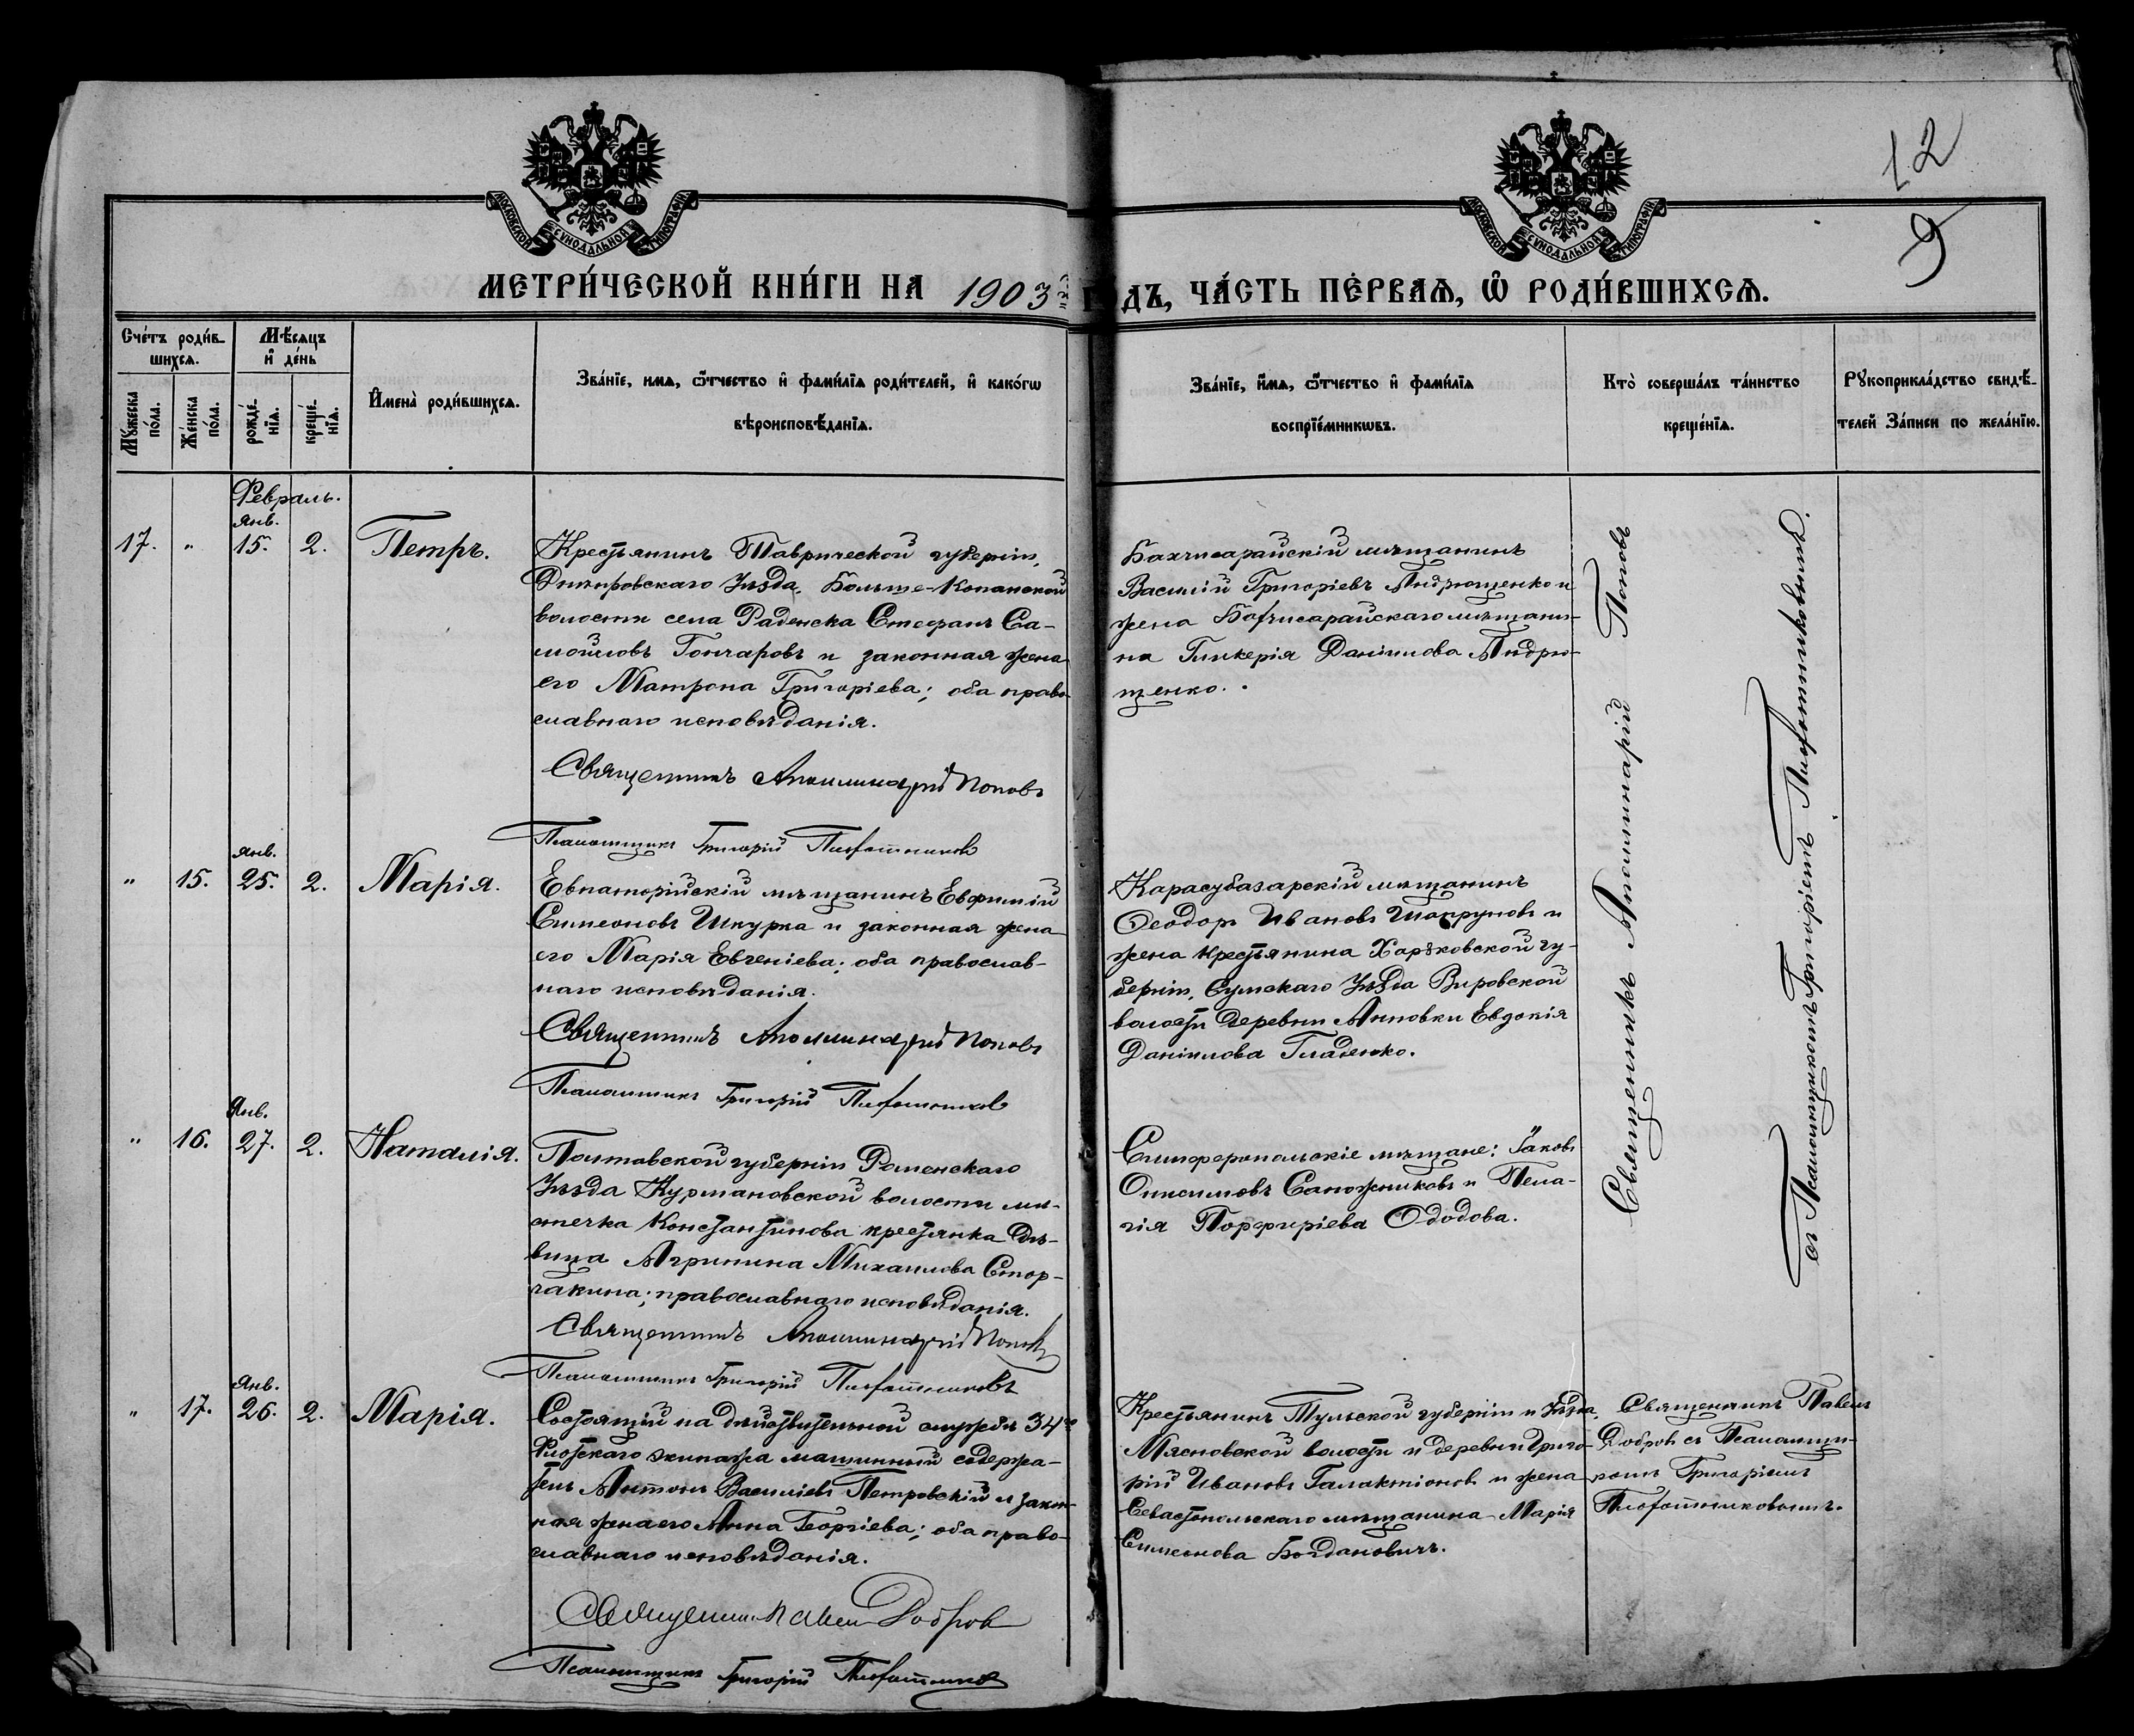 12
9
МОСКОВСКОЙ СУНОДАЛЬНОЙ ТИПОГРАФІИ
МОСКОВСКОЙ СУНОДАЛЬНОЙ ТИПОГРАФІИ
МЕТРИ́ЧЕСКОЙ КНИ́ГИ НА 1903 ГОДЪ, ЧА́СТЬ ПЕ́РВАѦ, Ѡ РОДИ́ВШИХСѦ.
Сче́тъ роди́в-
шихсѧ.
Мꙋ́жеска по́ла.
Же́нска по́ла.
Мѣ́сяцъ
и де́нь
рожде́-
нїѧ.
креще́-
нїѧ.
Имена̀ роди́вшихсѧ.
Зва́нїе, имѧ, ѻ́тчество и фами́лїѧ роди́телей, и како́гѡ
вѣроисповѣ́данїѧ.
Зва́нїе, и́мѧ, ѻ́тчество и фами́лїѧ
воспрїе́мникѡвъ.
Кто̀ соверша́лъ та́инство
креще́нїѧ.
Рꙋкоприкла́дство свидѣ́-
телей за́писи по жела́нїю.
Февраль.
Янв.
17. " 15. 2. Петръ.
Крестьянинъ Таврической губерніи,
Днѣпровскаго Уѣзда, Больше-Копанской
волости села Раденска Стефанъ Са-
мойловъ Гончаровъ и законная жена
его Матрона Григоріева; оба право-
славнаго исповѣданія.
Священникъ Аполлинарій Поповъ
Псаломщикъ Григорій Плохотниковъ
Бахчисарайскій мѣщанинъ
Василій Григоріевъ Андрющенко и
жена Бахчисарайскаго мѣщани-
на Гликерія Даніилова Андрю-
щенко.
Священникъ Аполлинарій Поповъ
съ Псаломщикомъ Григоріемъ Плохотниковымъ.
Янв.
" 15. 25. 2. Марія.
Евпаторійскій мѣщанинъ Евфимій
Симеоновъ Шкурка и законная жена
его Марія Евгеніева; оба православ-
наго исповѣданія.
Священникъ Аполлинарій Поповъ
Псаломщикъ Григорій Плохотниковъ
Карасубазарскій мѣщанинъ
Ѳеодоръ Ивановъ Шапруновъ и
жена крестьянина Харьковской гу-
берніи, Сумскаго Уѣзда Вировской
волости деревни Анновки Евдокія
Даніилова Гладенко.
Янв.
" 16. 27. 2. Наталія.
Полтавской губерніи Роменскаго
Уѣзда Курмановской волости мѣ-
стечка Константинова крестьянка дѣ-
вица Агрипина Михаилова Стор-
чакина; православнаго исповѣданія.
Священникъ Аполлинарій Поповъ
Псаломщикъ Григорій Плохотниковъ
Симферопольскіе мѣщане: Іаковъ
Онисимовъ Сапожниковъ и Пела-
гія Порфиріева Ододова.
Янв.
" 17. 26. 2. Марія.
Состоящій на дѣйствительной службѣ 34го
Флотскаго экипажа машинный содержа-
тель Антонъ Василіевъ Петровскій и закон-
ная жена его Анна Георгіева; оба право-
славнаго исповѣданія.
Священникъ Павелъ Добровъ
Псаломщикъ Григорій Плохотниковъ
Крестьянинъ Тульской губерніи и Уѣзда,
Мясновской волости и деревни Григо-
рій Ивановъ Галактіоновъ и жена
Севастопольскаго мѣщанина Марія
Симеонова Богдановичъ.
Священникъ Павелъ
Добровъ съ Псаломщи-
комъ Григоріемъ
Плохотниковымъ.